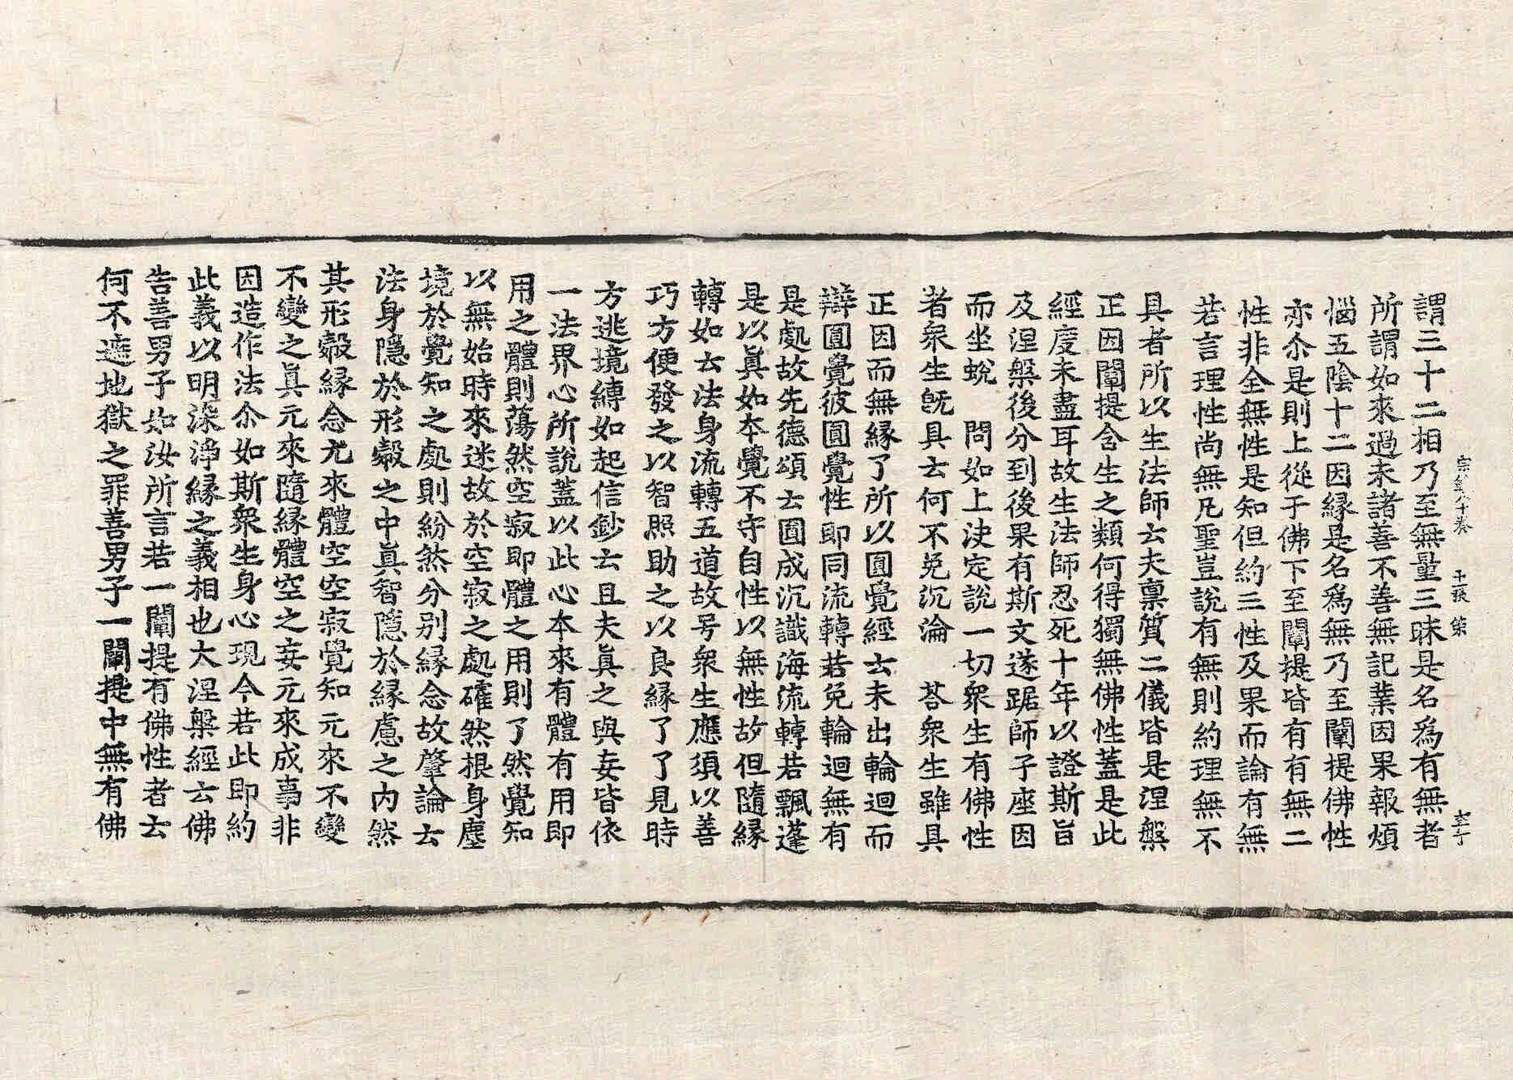 謂三十二相乃至無量三昧是名爲有無者
所謂如來過未諸善不善無記業因果報煩
惱五陰十二因緣是名爲無乃至闡提佛性
亦尒是則上從于佛下至闡提皆有有無二
性非全無性是知但約三性及果而論有無
若言理性尚無凡聖豈說有無則約理無不
具者所以生法師云夫稟質二儀皆是涅槃
正因闡提含生之類何得獨無佛性蓋是此
經度未盡耳故生法師忍死十年以證斯旨
及涅槃後分到後果有斯文遂踞師子座因
而坐蛻　問如上決定說一切衆生有佛性
者衆生旣具云何不免沉淪　荅衆生雖具
正因而無緣了所以圓覺經云未出輪迴而
辯圓覺彼圓覺性即同流轉若免輪迴無有
是處故先德頌云圓成沉識海流轉若飄蓬
是以眞如本覺不守自性以無性故但隨緣
轉如云法身流轉五道故号衆生應須以善
巧方便發之以智照助之以良緣了了見時
方逃境縛如起信鈔云且夫眞之與妄皆依
一法界心所說蓋以此心本來有體有用即
用之體則蕩然空寂即體之用則了然覺知
以無始時來迷故於空寂之處確然根身塵
境於覺知之處則紛然分別緣念故肇論云
法身隱於形㲉之中眞智隱於緣慮之內然
其形㲉緣念尤來體空空寂覺知元來不變
不變之眞元來隨緣體空之妄元來成事非
因造作法尒如斯衆生身心現今若此即約
此義以明染淨緣之義相也大涅槃經云佛
告善男子如汝所言若一闡提有佛性者云
何不遮地獄之罪善男子一闡提中無有佛